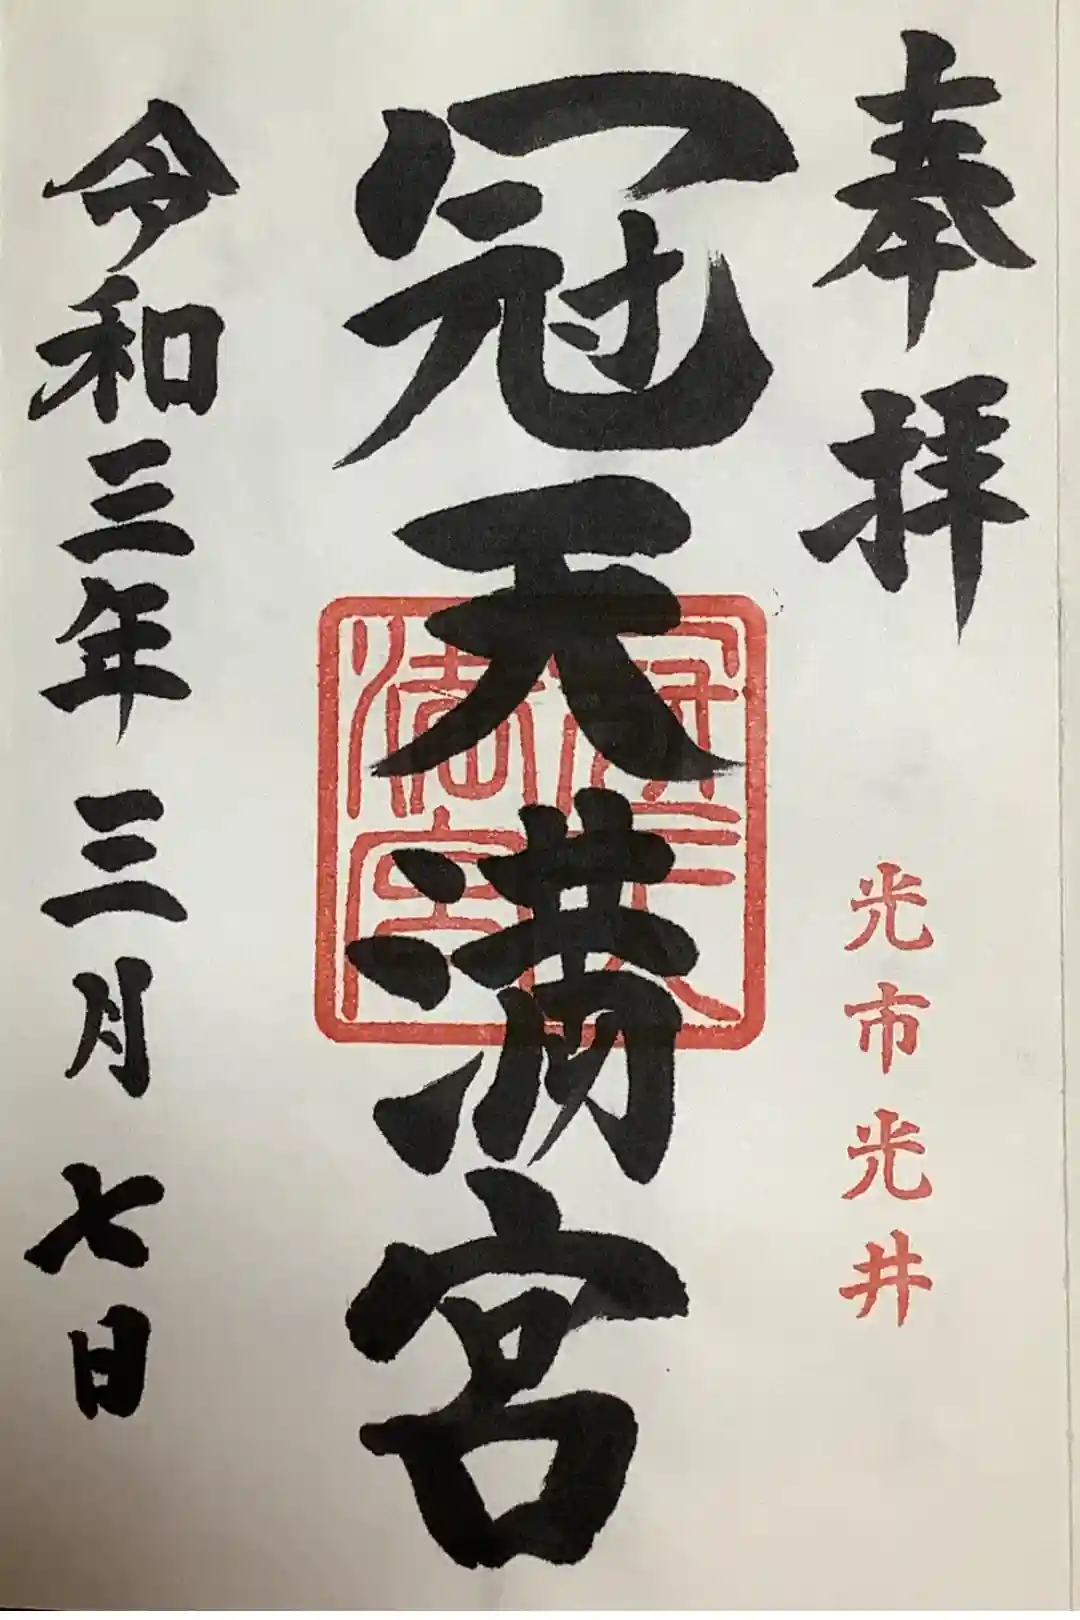 奉拝
光市光井
冠天満宮
令和三年三月七日